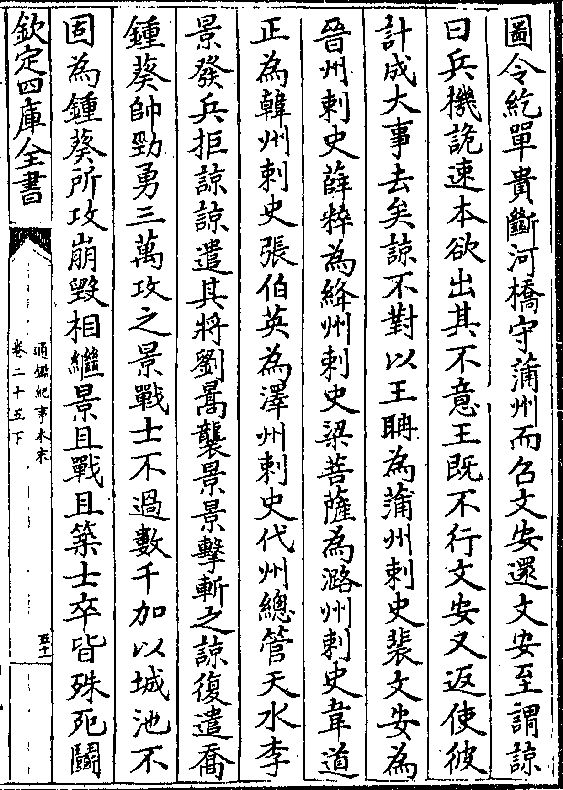 圖令紇單貴斷河橋守蒲州而召文安還文安至謂諒
曰兵機詭速本欲出其不意王既不行文安又返使彼
計成大事去矣諒不對以王聃為蒲州刺史裴文安為
晉州刺史薛粹為絳州刺史梁菩薩為潞州刺史韋道
正為韓州刺史張伯英為澤州刺史代州總管天水李
景發兵拒諒諒遣其將劉暠襲景景擊斬之諒復遣喬
鍾葵帥勁勇三萬攻之景戰士不過數千加以城池不
固為鍾葵所攻崩毀相繼景且戰且築士卒皆殊死鬭
欽定四庫全書
通鑑紀事本末
卷二十五下
五十